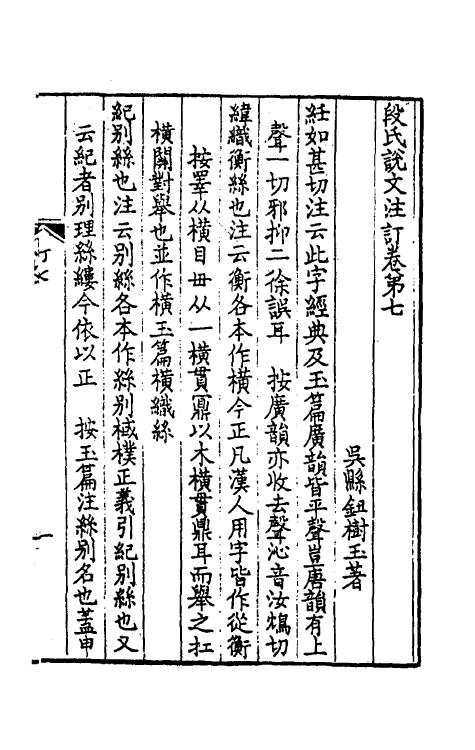 段氏說文注訂卷第七
吳縣鈕樹玉著
紝如甚切注云此字經典及玉篇廣韻皆平聲豈唐韻有上
聲一切邪抑二徐誤耳 按廣韻亦收去聲沁音汝鴆切
緯織衡絲也注云衡各本作橫今正凡漢人用字皆作從衡
按睪从橫目毌从一橫貫鼏以木橫貫鼎耳而舉之扛
橫關對舉也並作橫玉篇橫織絲
紀別絲也注云別絲各本作絲別棫樸正義引紀別絲也又
云紀者別理絲縷今依以正 按玉篇注絲別名也蓋申
一